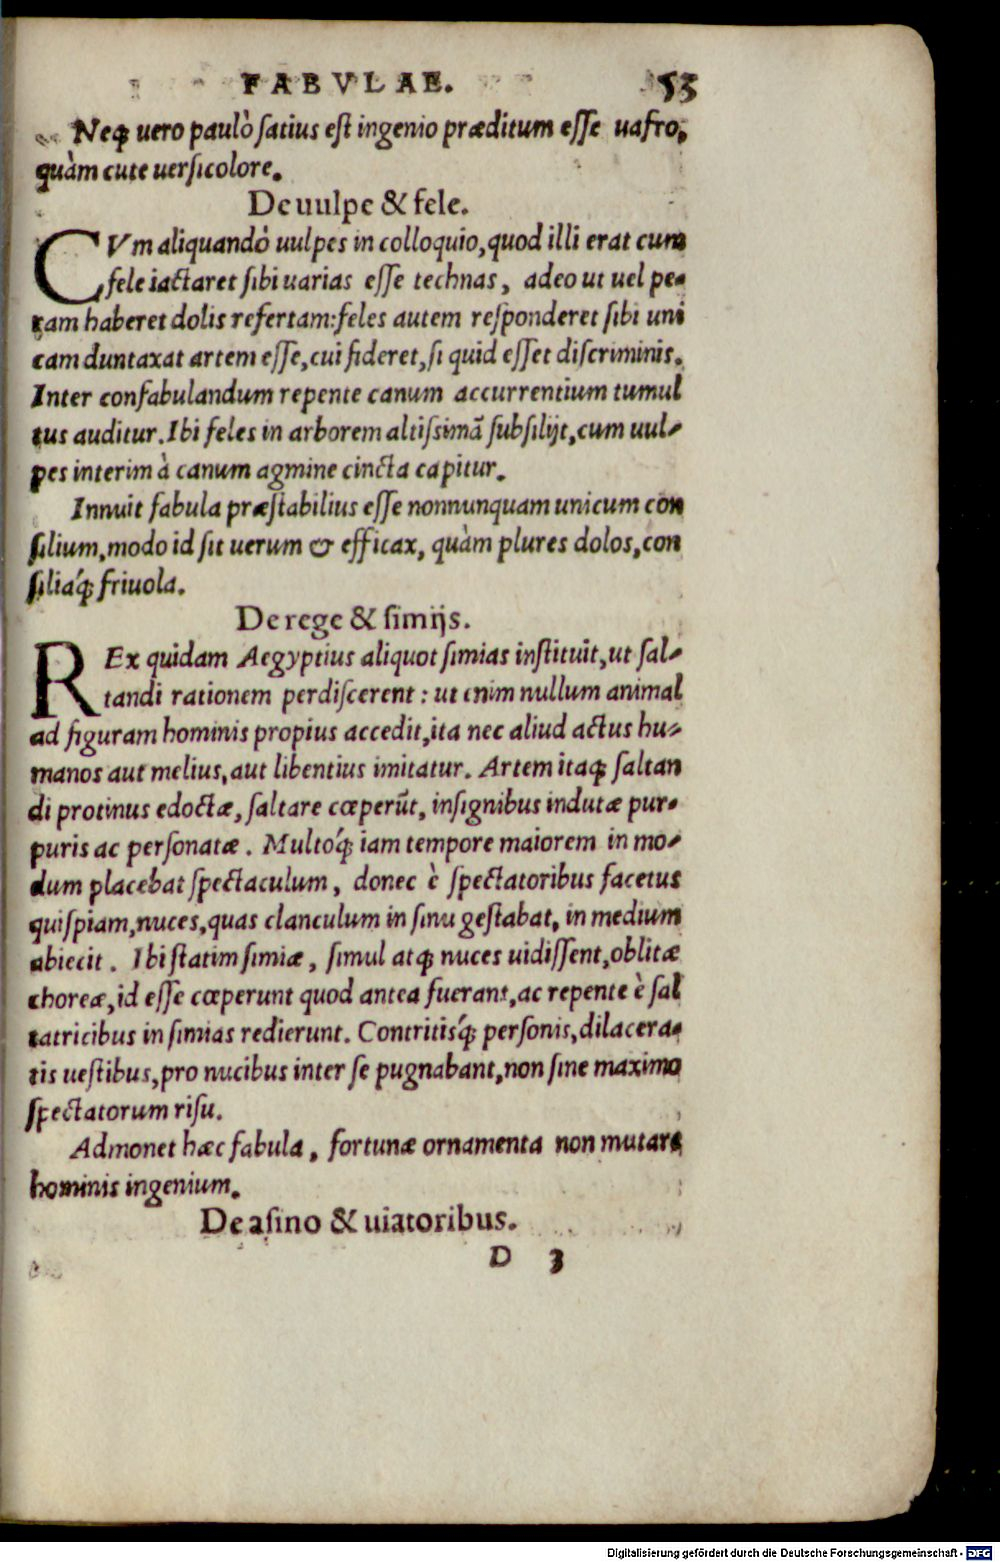 FABVLAE. 53
Neq; uero paulò satius est ingenio præditum esse uafro,
quàm cute uersicolore.
De uulpe & fele.
CVm aliquandò uulpes in colloquio, quod illi erat cum
fele iactaret sibi uarias esse technas, adeo ut uel pe-
ram haberet dolis refertam: feles autem responderet sibi uni
cam duntaxat artem esse, cui fideret, si quid esset discriminis.
Inter confabulandum repente canum accurrentium tumul
tus auditur. Ibi feles in arborem altissimã subsilijt, cum uul-
pes interim à canum agmine cincta capitur.
Innuit fabula præstabilius esse nonnunquam unicum con
silium, modo id sit uerum & efficax, quàm plures dolos, con
siliáq; friuola.
De rege & simijs.
REx quidam Aegyptius aliquot simias instituit, ut sal-
tandi rationem perdiscerent: ut enim nullum animal
ad figuram hominis propius accedit, ita nec aliud actus hu-
manos aut melius, aut libentius imitatur. Artem itaq; saltan
di protinus edoctæ, saltare cœperũt, insignibus indutæ pur-
puris ac personatæ. Multóq; iam tempore maiorem in mo-
dum placebat spectaculum, donec è spectatoribus facetus
quispiam, nuces, quas clanculum in sinu gestabat, in medium
abiecit. Ibi statim simiæ, simul atq; nuces uidissent, oblitæ
choreæ, id esse cœperunt quod antea fuerant, ac repente è sal
tatricibus in simias redierunt. Contritisq́; personis, dilacera-
tis uestibus, pro nucibus inter se pugnabant, non sine maximo
spectatorum risu.
Admonet hæc fabula, fortunæ ornamenta non mutare
hominis ingenium.
De asino & uiatoribus.
D 3
Digitalisierung gefördert durch die Deutsche Forschungsgemeinschaft - DFG